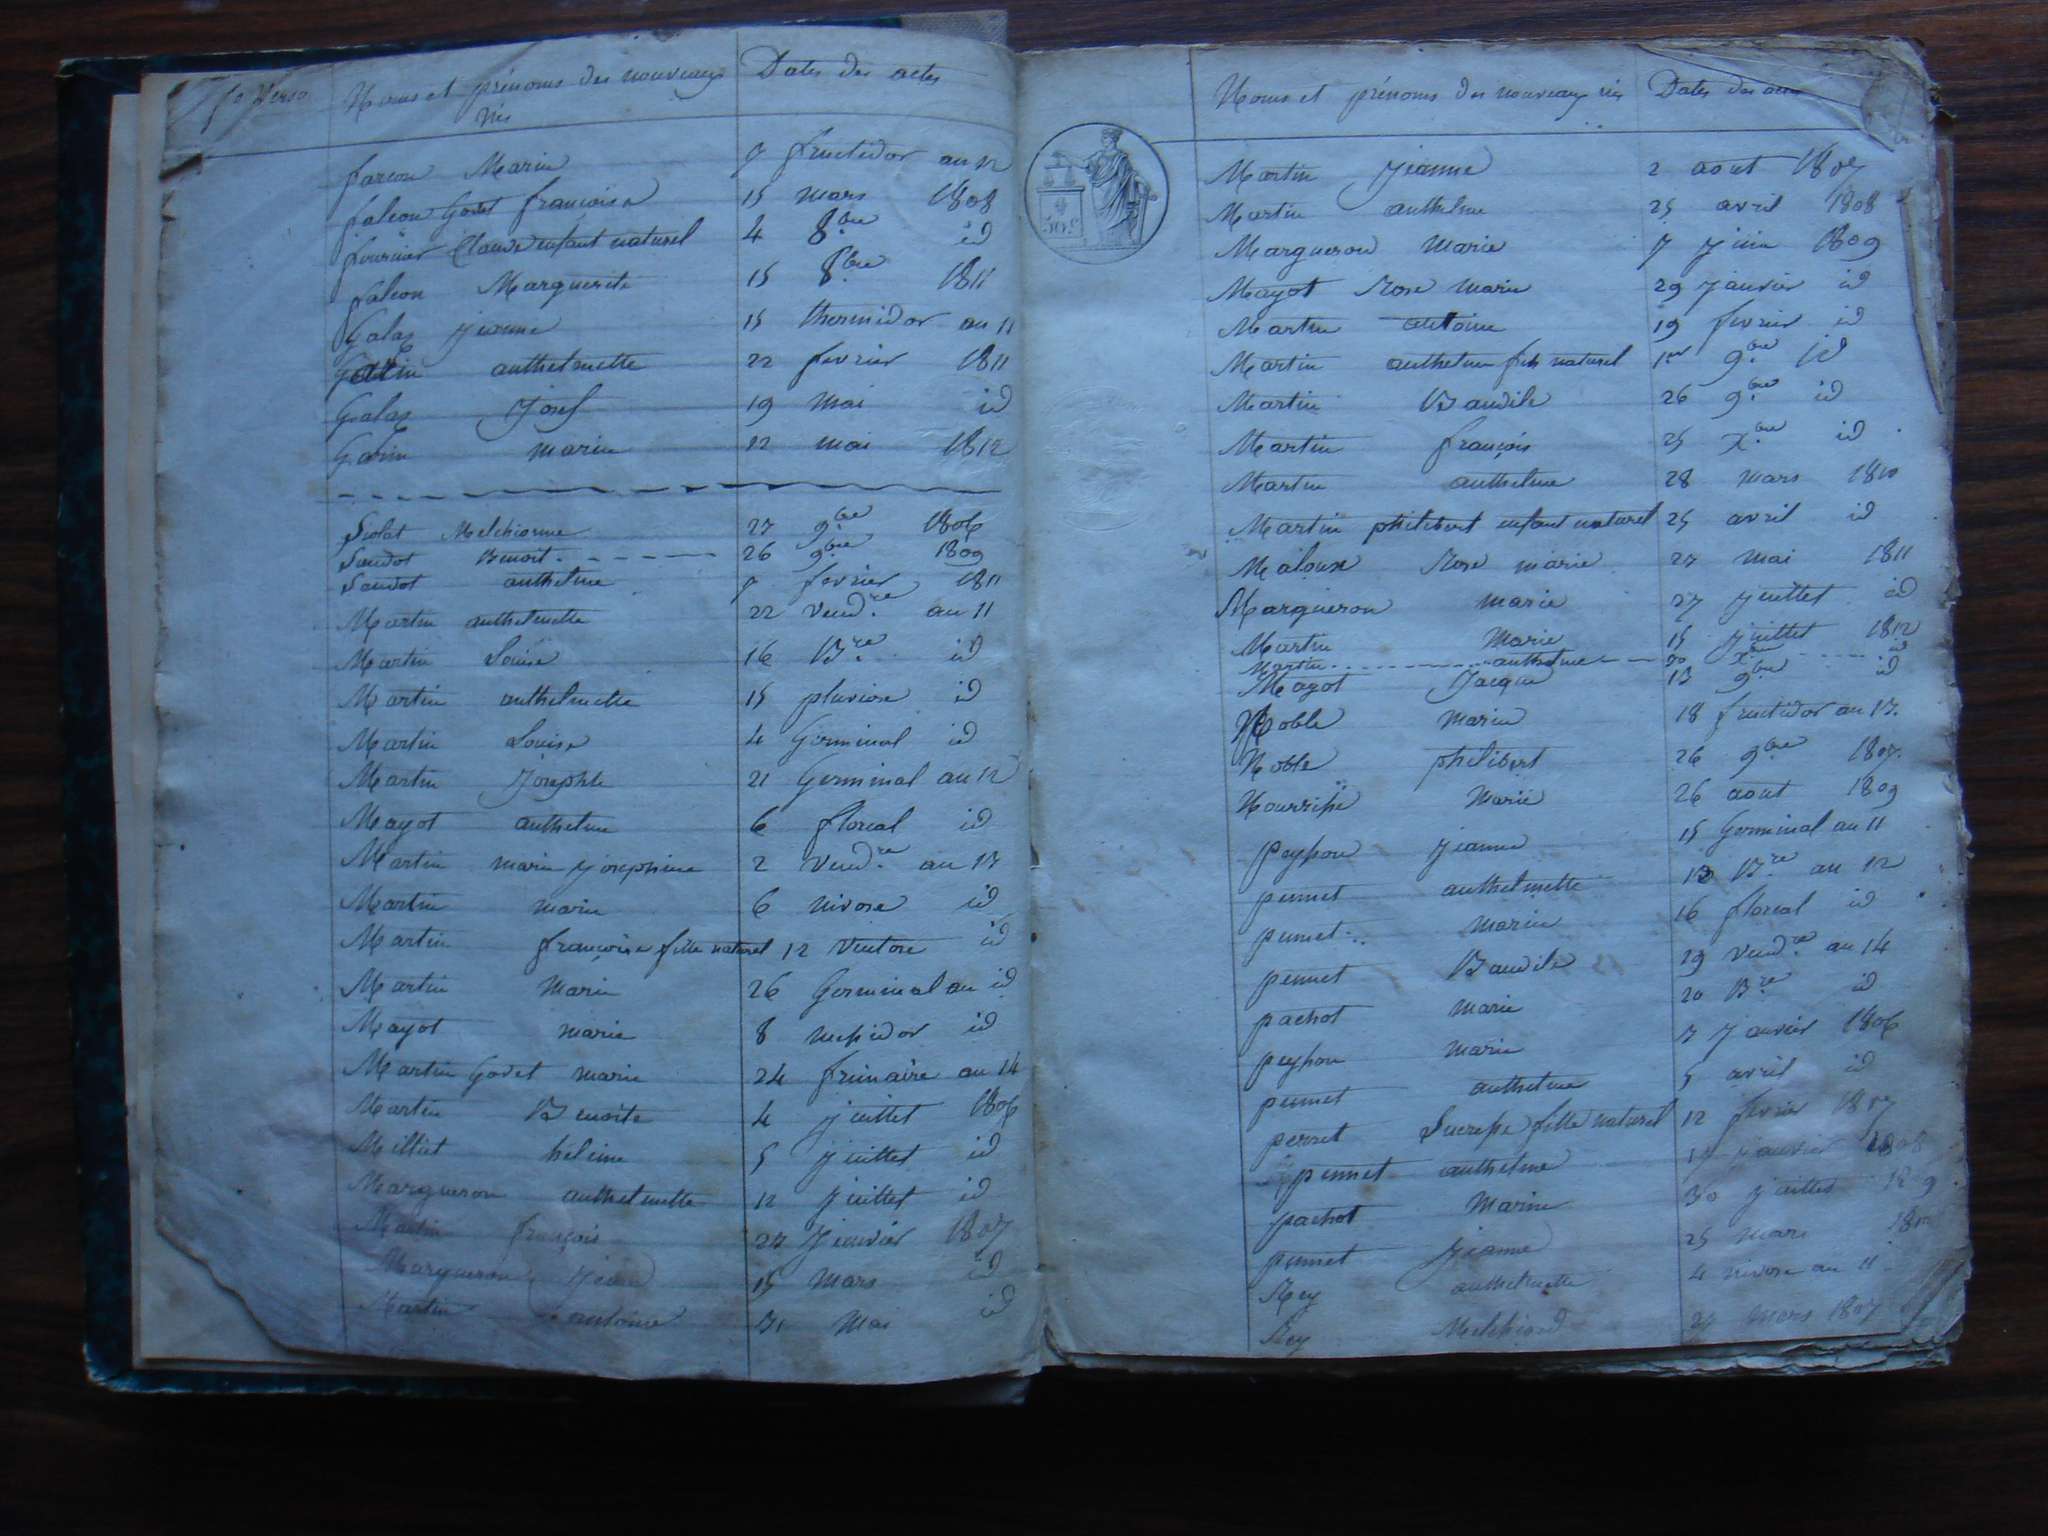 fo Verso
Noms et prénoms des nouveaux nés
Dates des actes
falcon Marie 9 fructidor an 12
falcon Godet françoise 15 mars 1808
fournier Claude enfant naturel 4 8bre id
falcon Marguerite 15 8bre 1811
Galay Jeanne 15 thermidor an 11
anthelmette 22 fevrier 1811
Galay Josef 19 mai id
Garin marie 12 mai 1812
Melchionne 27 9bre 1806
Benoit 26 9bre 1809
anthelme 9 fevrier 1811
Martin anthelmette 22 vend.re an 11
Martin Louise 16 B.re id
Martin anthelmette 15 pluviose id
Martin Louise 4 Germinal id
Martin Josephte 21 Germinal an 12
Mayot anthelme 6 floreal id
Martin marie josephine 2 vend.re an 13
Martin marie 6 nivose id
Martin francoise fille naturel 12 Ventose id
Martin Marie 26 Germinal an id
Mayot marie 8 messidor id
Martin Godet marie 24 frimaire an 14
Martin Benoite 4 juillet 1806
Milliat héleine 5 juillet id
Margueron anthelmette 12 juillet id
Martin françois 27 Janvier 1807
Margueron Jean 15 Mars id
Martin antoine 31 Mai id
Noms et prénoms des nouveaux nés
Dates des actes
Martin Jeanne 2 aout 1807
Martin anthelme 25 avril 1808
Margueron Marie 7 Juin 1809
Mayot Rose marie 29 Janvier id
Martin antoine 19 fevrier id
Martin anthelme fils naturel 1er 9bre id
Martin Baudile 26 9bre id
Martin françois 25 Xbre id
Martin anthelme 28 mars 1810
Martin philibert enfant naturel 25 avril id
Malouse Rose marie 27 mai 1811
Margueron marie 27 juillet id
Martin Marie 15 juillet 1812
Martin anthelme 30 Xbre id
Mayot Jacque 13 9bre id
Noble marie 18 fructidor an 13.
Noble philibert 26 9bre 1807.
Nourrisse Marie 26 aout 1809
peysson Jeanne 15 Germinal an 11
pennet anthelmette 13 B.re an 12
pennet marie 16 floreal id
pennet Baudile 29 vend.re an 14
pachot marie 20 B.re id
peysson marie 7 Janvier 1806
pennet anthelme 5 avril id
pernet Lucresse fille naturel 12 fevrier 1807
pennet anthelme 17 janvier 1808
pachot Marie 30 juillet 1809
pennet Jeanne 25 mars
Rey anthelmette 4 nivose an 11
Rey Melchiord mars 1807
50 C